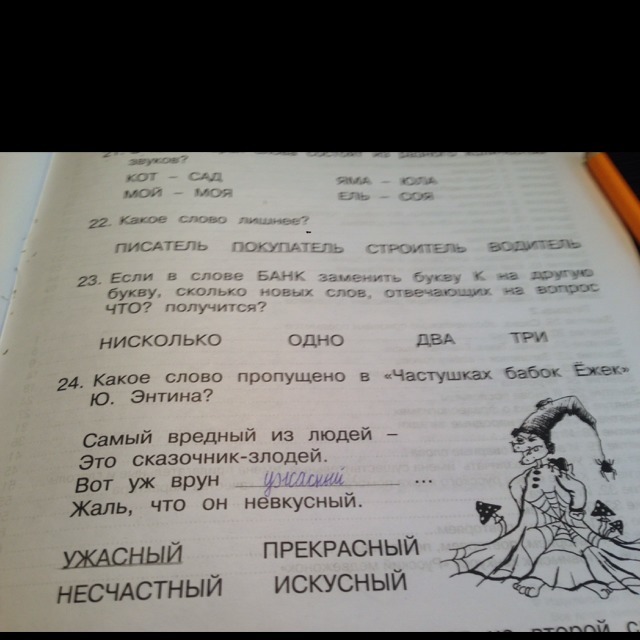 звуков?
КОТ – САД ЯМА – ЮЛА
МОЙ – МОЯ ЕЛЬ – СОЯ
22. Какое слово лишнее?
ПИСАТЕЛЬ ПОКУПАТЕЛЬ СТРОИТЕЛЬ ВОДИТЕЛЬ
23. Если в слове БАНК заменить букву К на другую
букву, сколько новых слов, отвечающих на вопрос
ЧТО? получится?
НИСКОЛЬКО ОДНО ДВА ТРИ
24. Какое слово пропущено в «Частушках бабок Ёжек»
Ю. Энтина?
Самый вредный из людей –
Это сказочник-злодей.
Вот уж врун ужасный ...
Жаль, что он невкусный.
УЖАСНЫЙ ПРЕКРАСНЫЙ
НЕСЧАСТНЫЙ ИСКУСНЫЙ